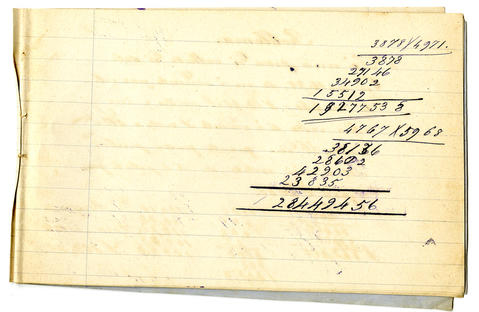 3878 X 4971.
3878
27146
34902
15512
19277538
4767 X 5968
38136
28602
42903
23835
28449456